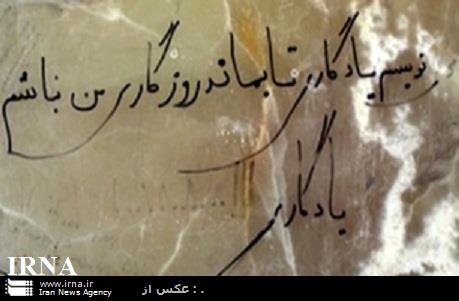 نویسم یادگاری تا بماند روزگاری من نباشم
یادگاری
IRNA
www.irna.ir
Iran News Agency
عکس از : .